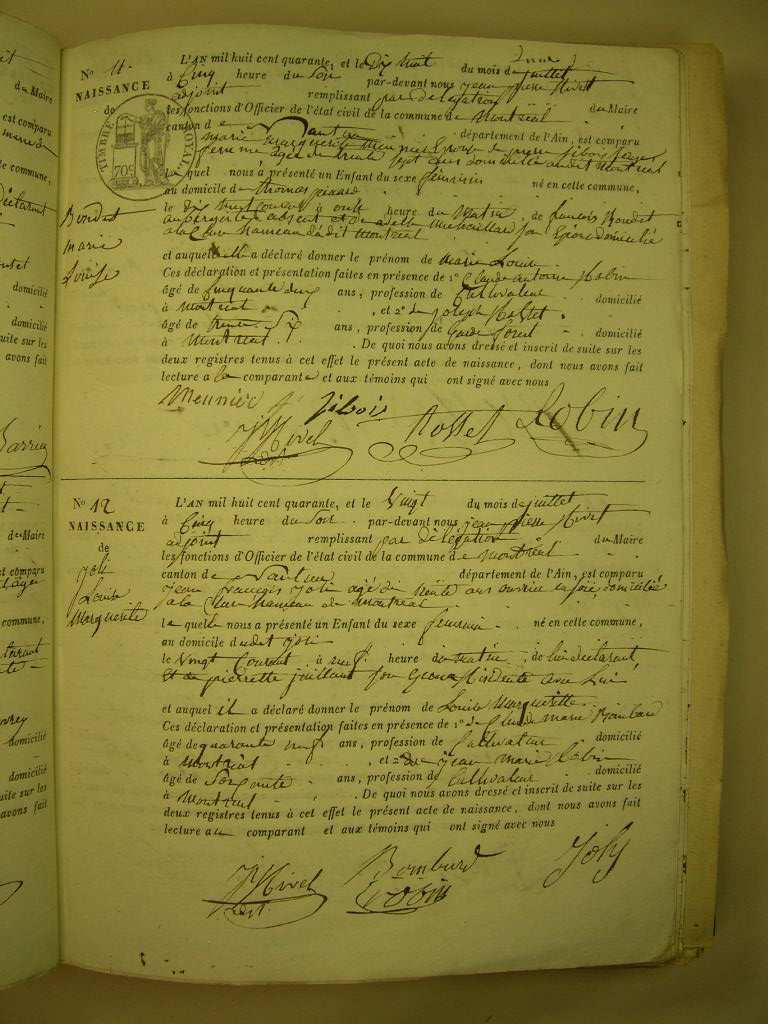 No 11.
NAISSANCE
de
TIMBRE ROYAL
70c
Bondet
marie
Louise
L'AN mil huit cent quarante, et le Dix huit du mois de juillet
à Cinq heure du Soir par-devant nous jean pierre hivet
adjoint remplissant par délégation du Maire
les fonctions d'Officier de l'état civil de la commune de Montréal
canton de Nantua département de l'Ain, est comparu
marie marguerite Meunier Epouse de pierre jibois
femme agée de trente sept ans domiciliée audit Montréal
La quelle nous a présenté un Enfant du sexe féminin né en cette commune,
au domicile de thomas
le dix huit courant à onze heure du Matin, de francois Bondet
aubergiste absent et de son Epouse domicilié
a la Cluse hameau dudit Montréal
et auquel elle a déclaré donner le prénom de Marie Louise
Ces déclaration et présentation faites en présence de 1o Claude antoine Robin
âgé de Cinquante deux ans, profession de Cultivateur domicilié
à Montréal, et 2o de joseph Rosset
âgé de trente Six ans, profession de Garde forest domicilié
à Montréal. De quoi nous avons dressé et inscrit de suite sur les
deux registres tenus à cet effet le présent acte de naissance, dont nous avons fait
lecture a la comparante et aux témoins qui ont signé avec nous
Meunier f jibois
JP Hivet Rosset Robin
adjt
No 12
NAISSANCE
de
Joli
Louise
Marguerite
L'AN mil huit cent quarante, et le Vingt du mois de juillet
à Cinq heure du Soir par-devant nous jean pierre hivet
adjoint remplissant par délégation du Maire
les fonctions d'Officier de l'état civil de la commune de Montréal
canton de Nantua département de l'Ain, est comparu
jean françois Joli agé de trente ans ouvrier en soie, domicilié
a la Cluse hameau de Montréal
le quel nous a présenté un Enfant du sexe féminin né en cette commune,
au domicile dudit Joli
le Vingt Courant à neuf heure du matin, de lui déclarant,
et de pierrette juillard son Epouse Résidente avec Lui
et auquel il a déclaré donner le prénom de Louise Marguerite
Ces déclaration et présentation faites en présence de 1o de Claude marie Bombard
âgé de quarante neuf ans, profession de Cultivateur domicilié
à Montréal, et 2o de jean marie Robin
âgé de Soixante ans, profession de Cultivateur domicilié
à Montréal. De quoi nous avons dressé et inscrit de suite sur les
deux registres tenus à cet effet le présent acte de naissance, dont nous avons fait
lecture au comparant et aux témoins qui ont signé avec nous
JP Hivet Bombard Joly
adjt Robin